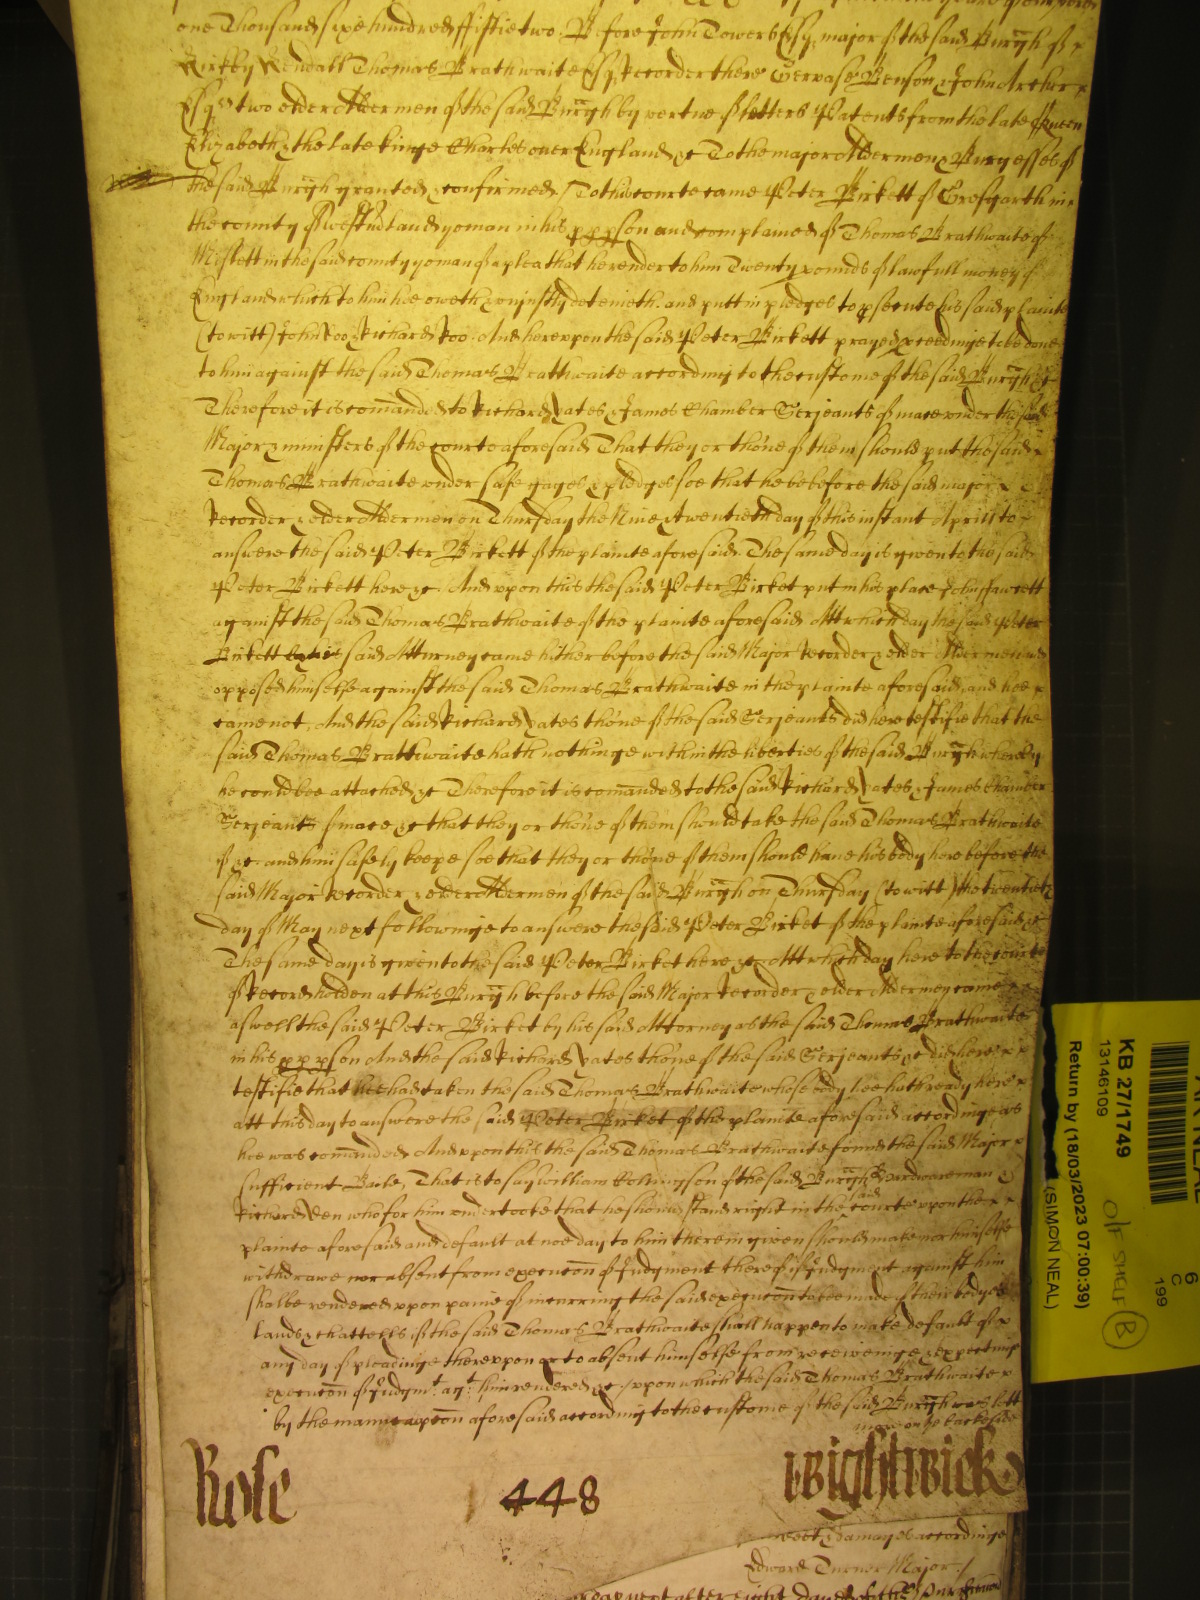 one Thousand sixe hundred fiftie two. Before John Towers Esqr major of the said Burgh of
Kirkby Kendall Thomas Brathwaite Esqr Recorder there Gervase Benson & John Archer
Esqrs two elder Aldermen of the said Burgh by vertue of letters Patents from the late Queen
Elizabeth & the late Kinge Charles over England &c To the major Aldermen & Burgesses of
the said Burgh granted & confirmed / To this courte came Peter Birkett of Crosgarth in
the county of Westmland yoman in his pper pson and complained of Thomas Brathwaite of
Mislett in the said county yoman of a plea that he render to him Twenty pounds of lawfull money of
England which to him hee oweth & uniustly deteineth. and putt in pledges to psecute his said plainte
(to witt) John Doo & Richard Roo. And hereupon the said Peter Birkett prayed pceedinge to be done
to him against the said Thomas Brathwaite according to the custome of the said Burgh &c
Therefore it is comanded to Richard Yates & James Chamber Serjeants of mace under the said
Major & ministers of the courte aforesaid That they or th'one of them should put the said
Thomas Brathwaite under safe gages & pledges soe that he be before the said major
Recorder & elder Aldermen on Thursday the Nine & twentieth day of this instant Aprill to
answere the said Peter Birkett of the plainte aforesaid The same day is given to the said
Peter Birkett here &c. And upon this the said Peter Birket put in his place John ffawcett
against the said Thomas Brathwaite of the plainte aforesaid Att which day the said Peter
Birkett by his said Atturney came hither before the said Major Recorder & elder Aldermen and
opposed himselfe against the said Thomas Brathwaite in the plainte aforesaid, and hee
came not, And the said Richard Yates th'one of the said Serjeants did here testifie that the
said Thomas Brathwaite hath nothinge within the liberties of the said Burgh whereby
he could bee attached &c Therefore it is comanded to the said Richard Yates & James Chamber
Serjeants of mace &c that they or th'one of them should take the said Thomas Brathwaite
if &c. and him safely keepe soe that they or th'one of them should have his body here before the
said Major Recorder & elder Aldermen of the said Burgh on Thursday (to witt) the twentieth
day of May next followinge to answere the said Peter Birket of the plainte aforesaid &c
The same day is given to the said Peter Birket here &c. Att which day here to the courte
of Record holden at this Burgh before the said Major Recorder & elder Aldermen came
aswell the said Peter Birket by his said Attorney as the said Thomas Brathwaite
in his pper pson And the said Richard Yates th'one of the said Serjeants &c did here
testifie that hee had taken the said Thomas Brathwaite whose body hee hath ready here
att this day to answere the said Peter Birket of the plainte aforesaid accordinge as
hee was comanded. And upon this the said Thomas Brathwaite found the said Major
sufficient Baile, That is to say William of the said Burgh hardwareman &
Richard who for him undertooke that he should stand right in the said courte upon the
plainte aforesaid and default at noe day to him therein given should make nor himselfe
withdrawe nor absent from execucon of Judgment thereof if Judgment against him
shalbe rendered upon paine of incurring the said execucon to bee made of their bodyes
lands & chattells if the said Thomas Brathwaite shall happen to make default of
any day of pleadinge thereupon or to absent himselfe from receiveinge & expecting
execucon of Judgmt. agt. him rendered &c. upon which the said Thomas Brathwaite
by the manucapcon aforesaid according to the custome of the said Burgh was lett
more on ye backside
Rose 448 Wightwick
and damages accordinge
Edward Turner Major /
KB 27/1749
13146109
Return by (18/03/2023 07:00:39)
(SIMON NEAL)
O/F SHELF B
6
C
199